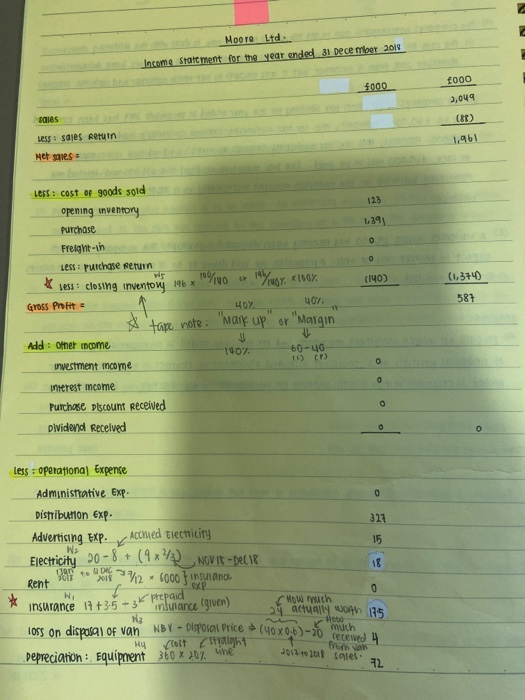 Moore Ltd.
Income statement for the year ended 31 December 2018
£000 £000
Sales 2,049
Less: sales Return (88)
Net sales = 1,961
Less: cost of goods sold
opening inventory 123
Purchase 1,391
Freight-in 0
Less: purchase Return 0
Less: closing inventory W5 196 x 100/140 or 196/140% x 100% (140) (1,374)
Gross Profit = 587
40% 40%
take note: "Mark up" or "Margin"
140% 60-40
(c) (P)
Add: Other income
investment income 0
interest income 0
Purchase Discount Received 0
Dividend Received 0 0
Less: operational Expense
Administrative Exp. 0
Distribution Exp. 327
Advertising Exp. 15
Accrued Electricity
W2
Electricity 20-8 + (9 x 2/3) NOV18-Dec18 18
2018 2018 7/12 x 6000 } insurance exp
Rent 0
W1 prepaid insurance (given)
insurance 17+3.5-3 17.5
How much actually worth
24
W3 How much received from van sales.
loss on disposal of van NBV - Disposal price → (40x0.6)-20 4
W4 cost straight line 2012 to 2018
Depreciation: Equipment 360 x 20% 72